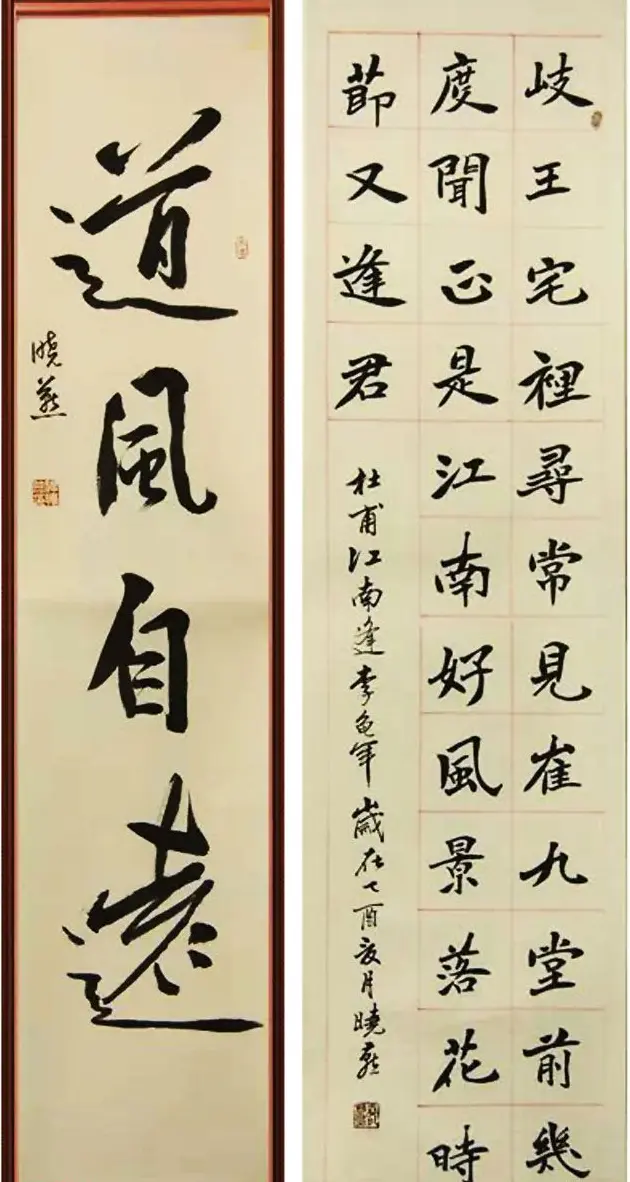 道風自遠
曉燕
岐王宅裡尋常見崔九堂前幾
度聞正是江南好風景落花時
節又逢君
杜甫江南逢李龜年歲在乙酉夏月曉燕